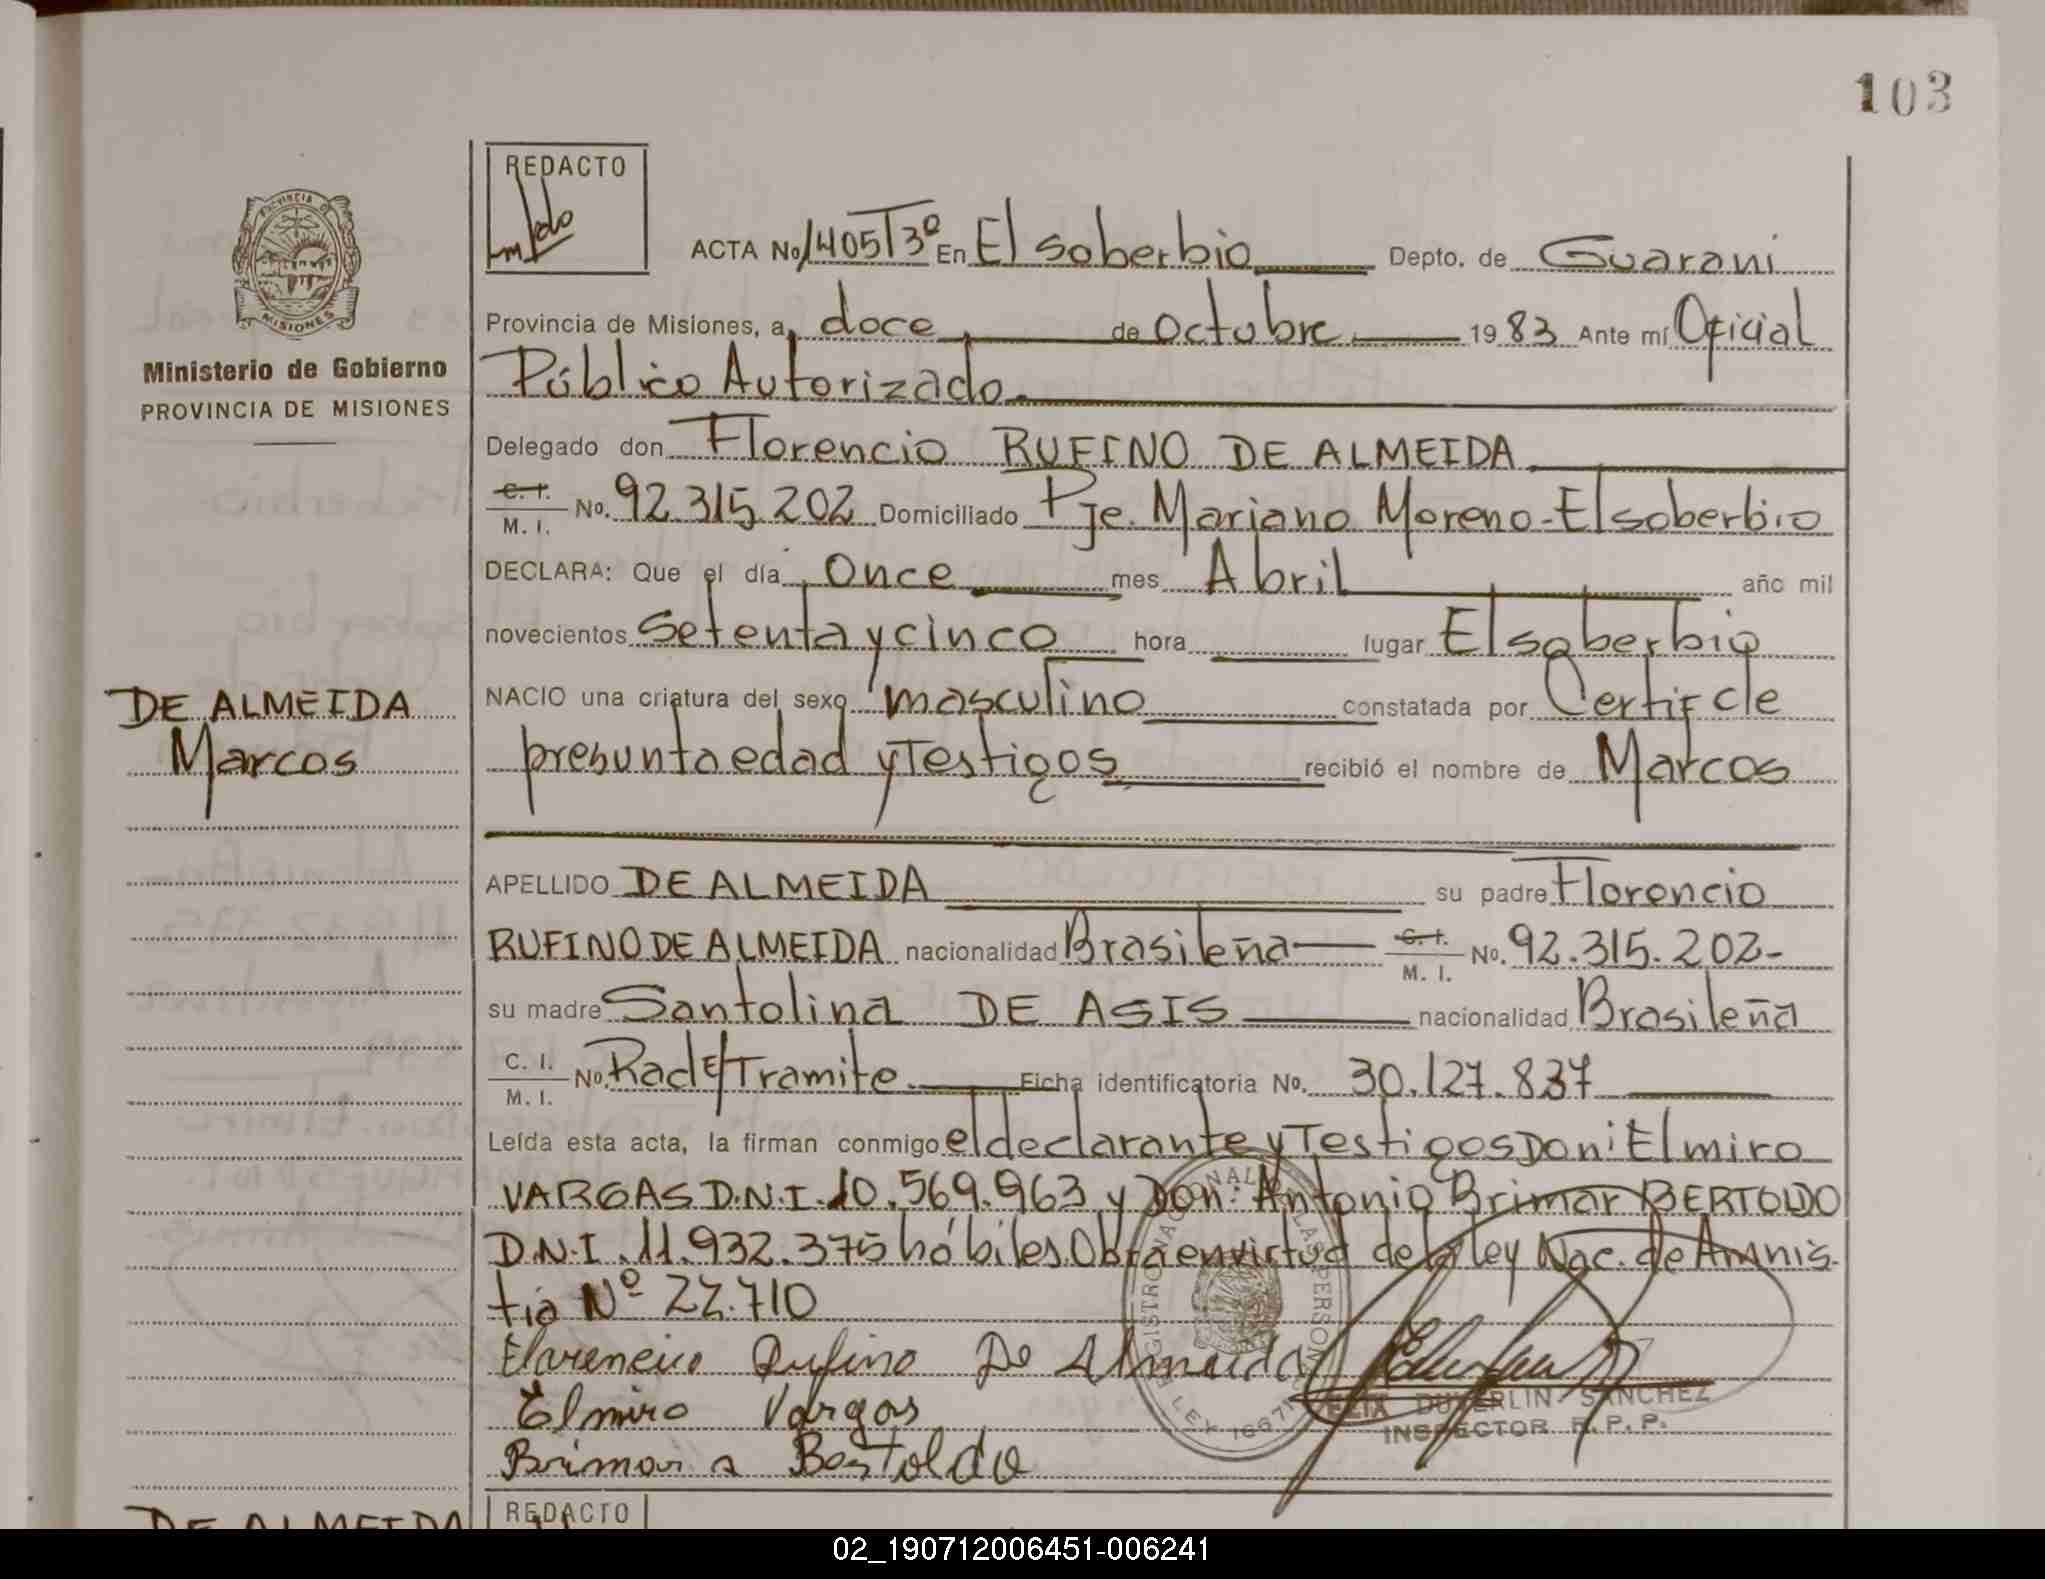 103
REDACTO
ACTA No 1405 T3º En El soberbio Depto. de Guarani
PROVINCIA DE
MISIONES
Ministerio de Gobierno
PROVINCIA DE MISIONES
Provincia de Misiones, a doce de octubre 1983 Ante mí Oficial
Público Autorizado
Delegado don Florencio RUFINO DE ALMEIDA
C. I. M. I. No. 92.315.202 Domiciliado Pje. Mariano Moreno-El soberbio
DECLARA: Que el día Once mes Abril año mil
novecientos setenta y cinco hora lugar El soberbio
NACIO una criatura del sexo masculino constatada por Certif de
presunta edad y Testigos recibió el nombre de Marcos
DE ALMEIDA
Marcos
APELLIDO DE ALMEIDA su padre Florencio
RUFINO DE ALMEIDA nacionalidad Brasileña C. I. M. I. No. 92.315.202-
su madre Santolina DE ASIS nacionalidad Brasileña
C. I. M. I. No. Rad E/Tramite Ficha identificatoria No. 30.127.837
Leída esta acta, la firman conmigo el declarante y Testigos Don: Elmiro
VARGAS D.N.I. 10.569.963 y Don: Antonio Brimar BERTOLDO
D.N.I. 11.932.375 hábiles. Obra en virtud de la ley Nac. de Amnis-
tia Nº 22.710
Florencio Rufino De Almeida
Elmiro Vargas
Brimar a Bertoldo
FELIX DUVERLIN SANCHEZ
INSPECTOR R.P.P.
DE ALMEIDA
REDACTO
02_190712006451-006241